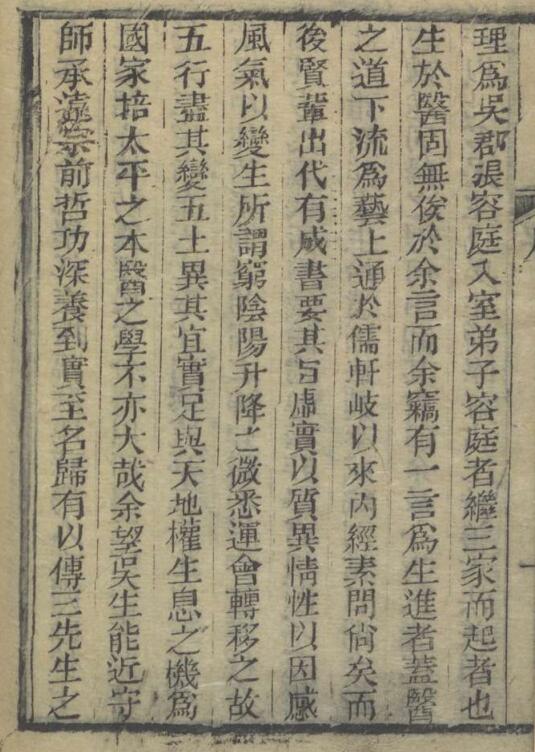 理爲吳郡張容庭入室弟子容庭者繼三家而起者也
生於醫固無俟於余言而余竊有一言爲生進者蓋醫
之道下流爲藝上通於儒軒岐以來內經素問尙矣而
後賢輩出代有成書要其旨虛實以質異情性以因感
風氣以變生所謂窮陰陽升降之微悉運會轉移之故
五行盡其變五土異其宜實足與天地權生息之機爲
國家培太平之本醫之學不亦大哉余望吳生能近守
師承遠宗前哲功深養到實至名歸有以傳三先生之